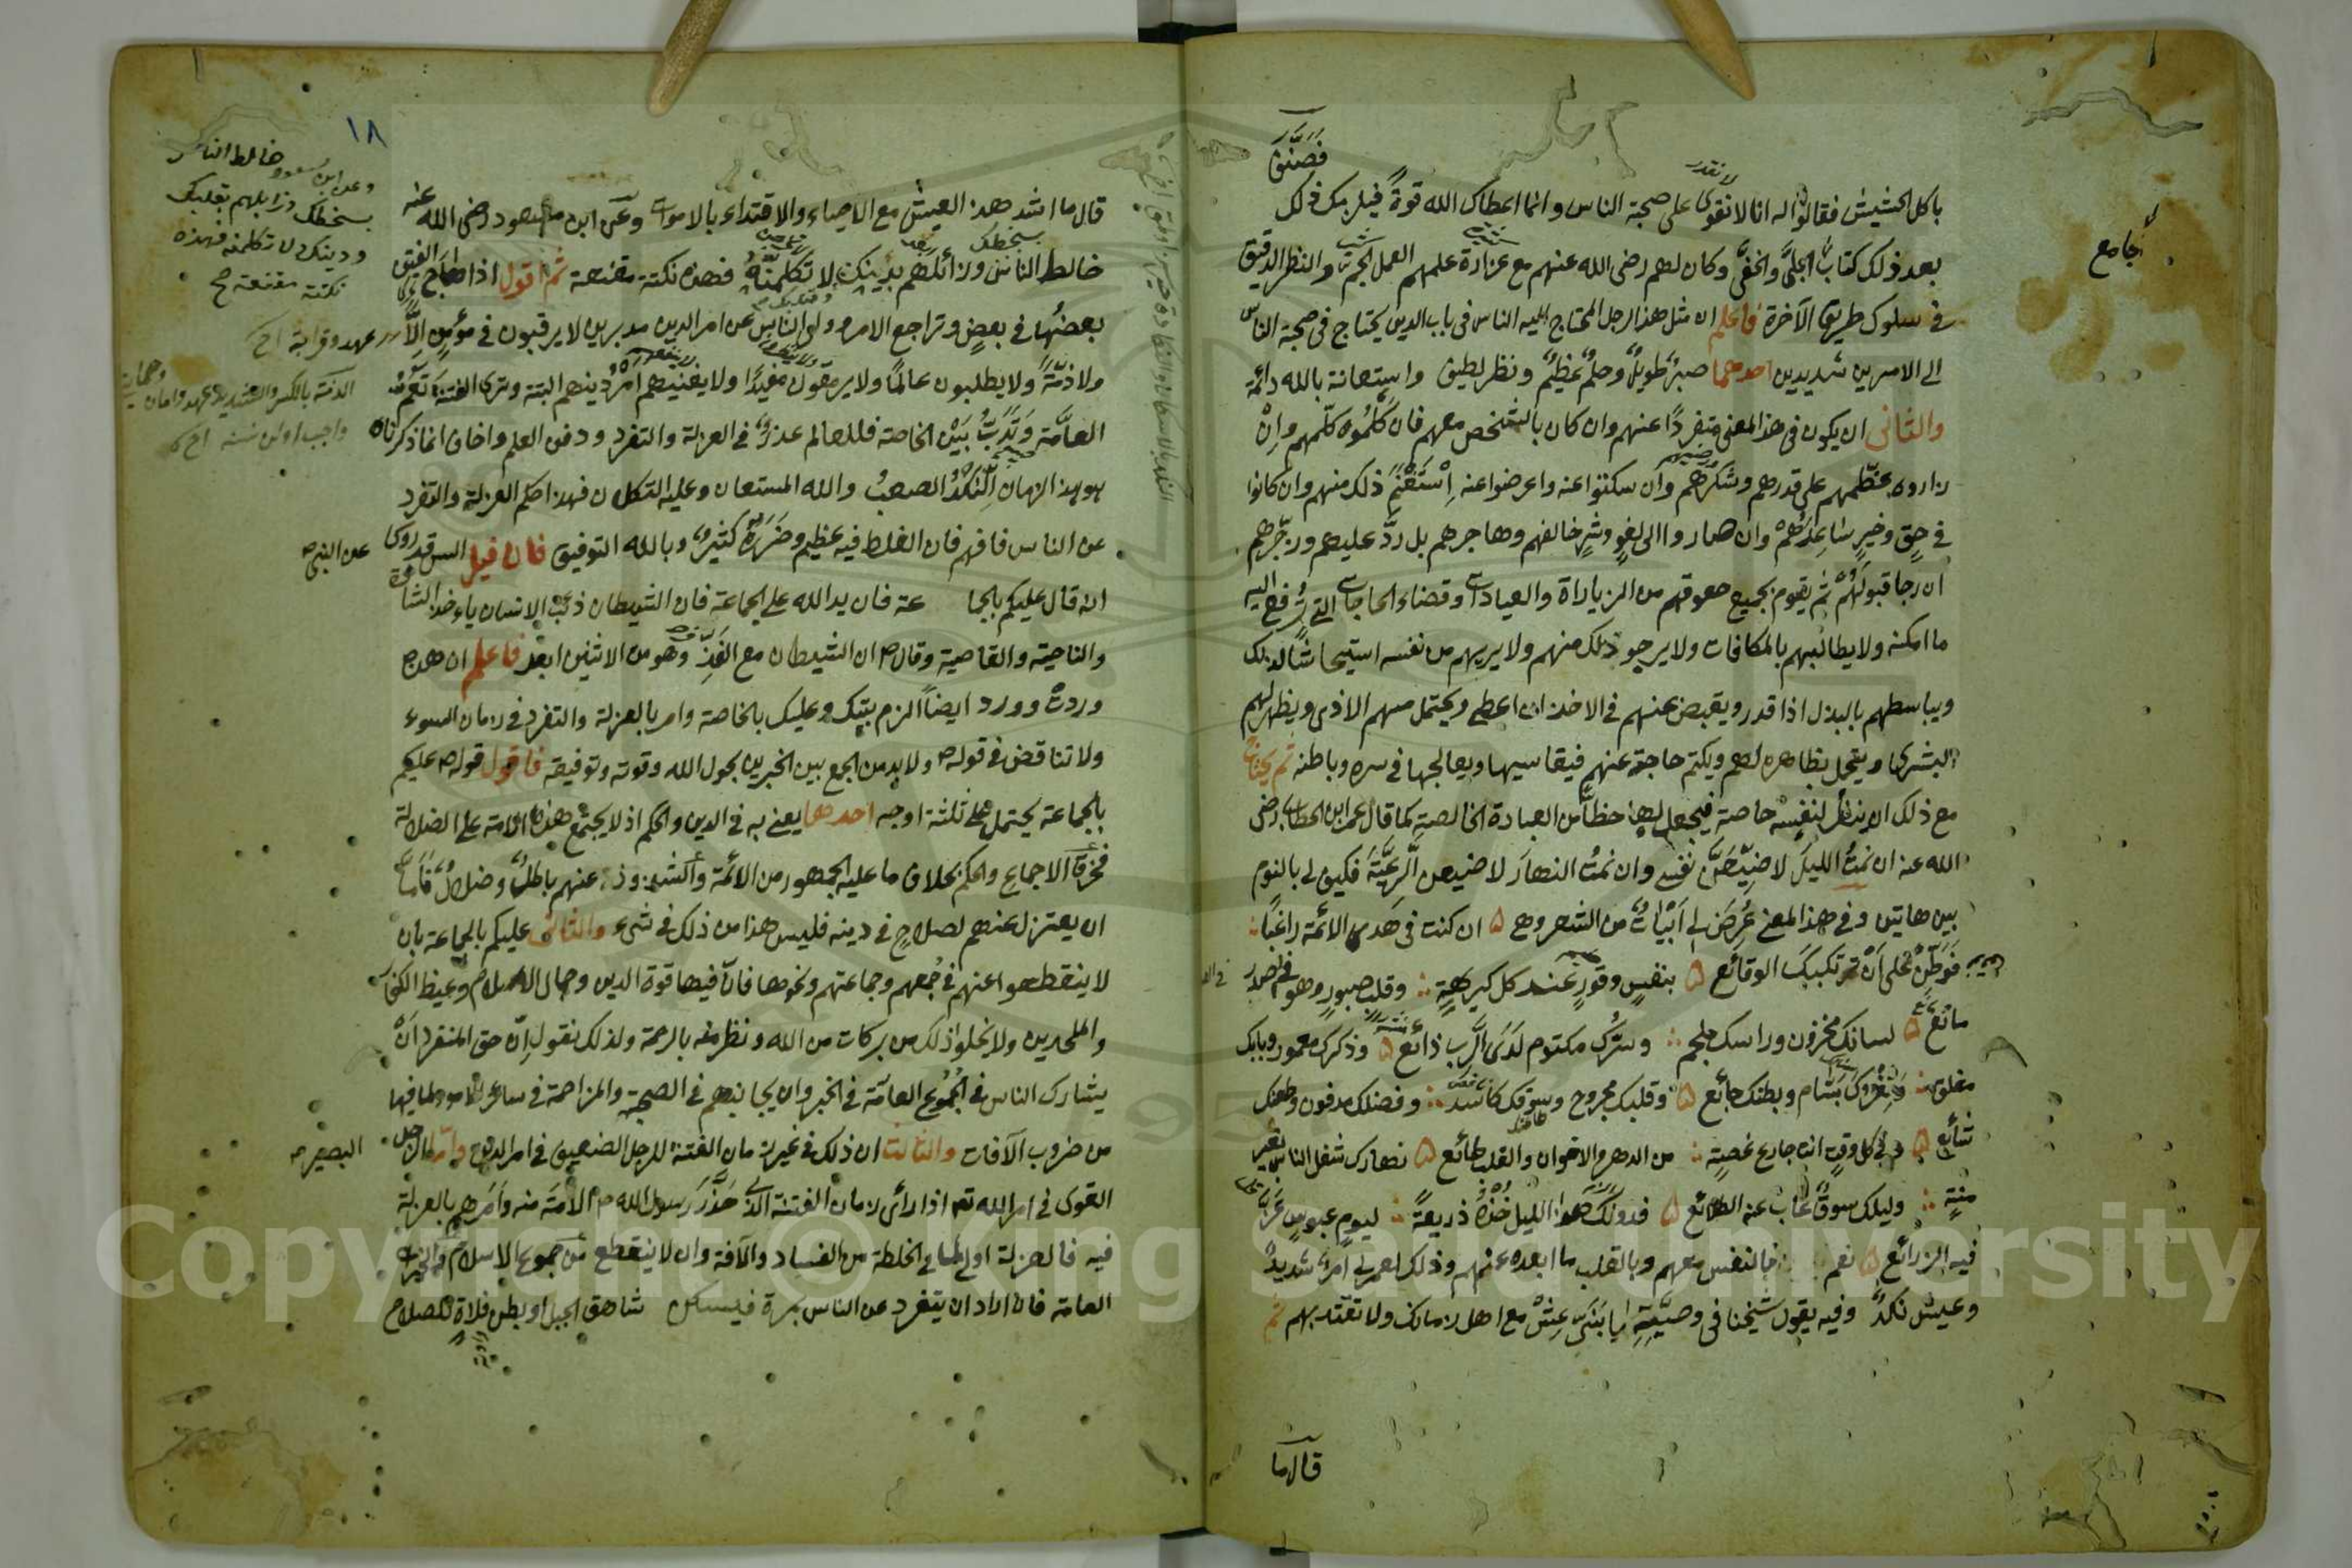 فصنّف
باكل الحشيش فقالوا له انا لا نقوى على صحبة الناس وانما اعطاك الله قوة قبل منك ذلك
لا نقدر
بعد ذلك كتاب الجلى والخفى وكان لهم رضى الله عنهم مع غزارة علمهم العمل الجم والنظر الدقيق
جامع
فى سلوك طريق الآخرة فاعلم ان مثل هذا الرجل المحتاج اليه الناس فى باب الدين يحتاج فى صحبة الناس
الى الامرين شديدين احدهما صبر طويل وحلم عظيم ونظر لطيف واستعانة بالله دائمة
والثانى ان يكون فى هذا المعنى منفردا عنهم وان كان بالشخص معهم فان كلموه كلمهم وان
زاروه عظمهم على قدرهم وشكرهم وان سكتوا عنه واعرضوا عنه استغنم ذلك منهم وان كانوا
فى حق وخير ساعدهم وان صاروا الى لغو وشر خالفهم وهاجرهم بل رد عليهم وزجرهم
ان رجا قبولهم ثم يقوم بجميع حقوقهم من الزيارة والعيادات وقضاء الحاجات التى ترفع اليه
ما امكنه ولا يطالبهم بالمكافات ولا يرجو ذلك منهم ولا يريهم من نفسه استيحاشا لذلك
ويباسطهم بالبذل اذا قدر ويقبض عنهم فى الاخذ ان اعطى ويحتمل منهم الاذى ويظهر لهم
البشرى ويتجمل بظاهره لهم ويكتم حاجته عنهم فيقاسيها ويعالجها فى سره وباطنه ثم يحتاج
مع ذلك ان ينظر لنفسه خاصة فيجعل لها حظا من العبادة الخالصة كما قال عمر ابن الخطاب رضى
الله عنه ان نمت الليل لاضيعن نفسى وان نمت النهار لاضيعن الرعية فكيف لى بالنوم
بين هاتين وفى هذا المعنى عرض لى ابيات من الشعر وهى ٥ ان كنت فى هدى الائمة راغبا
فوطن على ان ترتكبك الوقائع ٥ بنفس وقور عند كل كريهة وقلب صبور وهو فى الصدر
مانع ٥ لسانك مخزون وراسك ملجم وسرك مكتوم لدى الرب ذائع ٥ وذكرك مغمور وبابك
مغلق وثغرك بسام وبطنك جائع ٥ وقلبك مجروح وسوقك كاسد وفضلك مدفون وطعنك
شائع ٥ وفى كل وقت انت جارع غصة من الدهر والاخوان والقلب طائع ٥ نهارك شغل الناس بغير
منة وليلك سوق غاب عنه الطلائع ٥ فدونك هذا الليل خذه ذريعة ليوم عبوس عز
فيه الزرائع ٥ نعم فبالنفس معهم وبالقلب ما ابعده عنهم وذلك لعمرى امر شديد
وعيش نكد وفيه يقول شيخنا فى وصيته يا بنى عش مع اهل زمانك ولا تقتد بهم ثم
قال ما
١٨
قال ما اشد هذه العيش مع الاحياء والاقتداء بالاموات وعن ابن مسعود رضى الله عنه
خالط الناس وزائلهم بدينك لا تكلمنه فهذه نكتة مقنعة ثم اقول اذا ماج الفتن
بعضها فى بعض وتراجع الامر وولى الناس عن امر الدين مدبرين لا يرقبون فى مؤمن الا
ولا ذمة ولا يطلبون عالما ولا يرمقون مفيدا ولا يغنيهم امر دينهم البتة وترى الفتنة تعم
العامة وتدب بين الخاصة فللعالم عذر فى العزلة والتفرد ودفن العلم واخاف انما ذكرناه
هو هذا الزمان النكد الصعب والله المستعان وعليه التكلان فهذا حكم العزلة والتفرد
عن الناس فافهم فان الغلط فيه عظيم وضرره كثير وبالله التوفيق فان قيل اليس قد روى عن النبى ص
انه قال عليكم بالجماعة فان يد الله على الجماعة فان الشيطان ذئب الانسان ياءخذ الشاة
والناحية والقاصية وقال ص ان الشيطان مع الفذ وهو من الاثنين ابعد فاعلم ان هذه
وردت وورد ايضا الزم بيتك وعليك بالخاصة وامر بالعزلة والتفرد فى زمان السوء
ولا تناقض فى قوله ص ولا بد من الجمع بين الخبرين بحول الله وقوته وتوفيقه فاقول قوله ص عليكم
بالجماعة يحتمل على ثلثة اوجه احدها يعنى به فى الدين والحكم اذ لا يجتمع هذه الامة على الضلالة
فخرق الاجماع والحكم بخلاف ما عليه الجمهور من الائمة والشذوذ عنهم باطل وضلال فاما
ان يعتزل عنهم لصلاح فى دينه فليس هذا من ذلك فى شىء والثانى عليكم بالجماعة بان
لا ينقطعوا عنهم فى جمعهم وجماعتهم ونحوها فان فيها قوة الدين وجمال الاسلام وغيظ الكفار
والملحدين ولا يخلوا ذلك من بركات من الله ونظر منه بالرحمة ولذلك نقول ان حق المنفرد ان
يشارك الناس فى الجموع العامة فى الخير وان يجانبهم فى الصحبة والمزاحمة فى سائر الامور لما فيها
من ضروب الآفات والثالث ان ذلك فى غير زمان الفتنة للرجل الضعيف فى امر الدين واما الرجل البصير
القوى فى امر الله تع اذا رأى زمان الفتنة الذى حذر رسول الله ص الامة منه وامرهم بالعزلة
فيه فالعزلة اولى لما فى الخلطة من الفساد والآفة وان لا ينقطع من جموع الاسلام فى الخير
العامة فان اراد ان يتفرد عن الناس بمرة فليسكن شاهق الجبل او بطن فلاة لصلاح
وعن ابن مسعود خالط الناس
بسخطك وزايلهم بقلبك
ودينك لا تكلمنه فهذه
نكتة مقنعة صح
عهد وقرابة
Copyright © King Saud University
1957